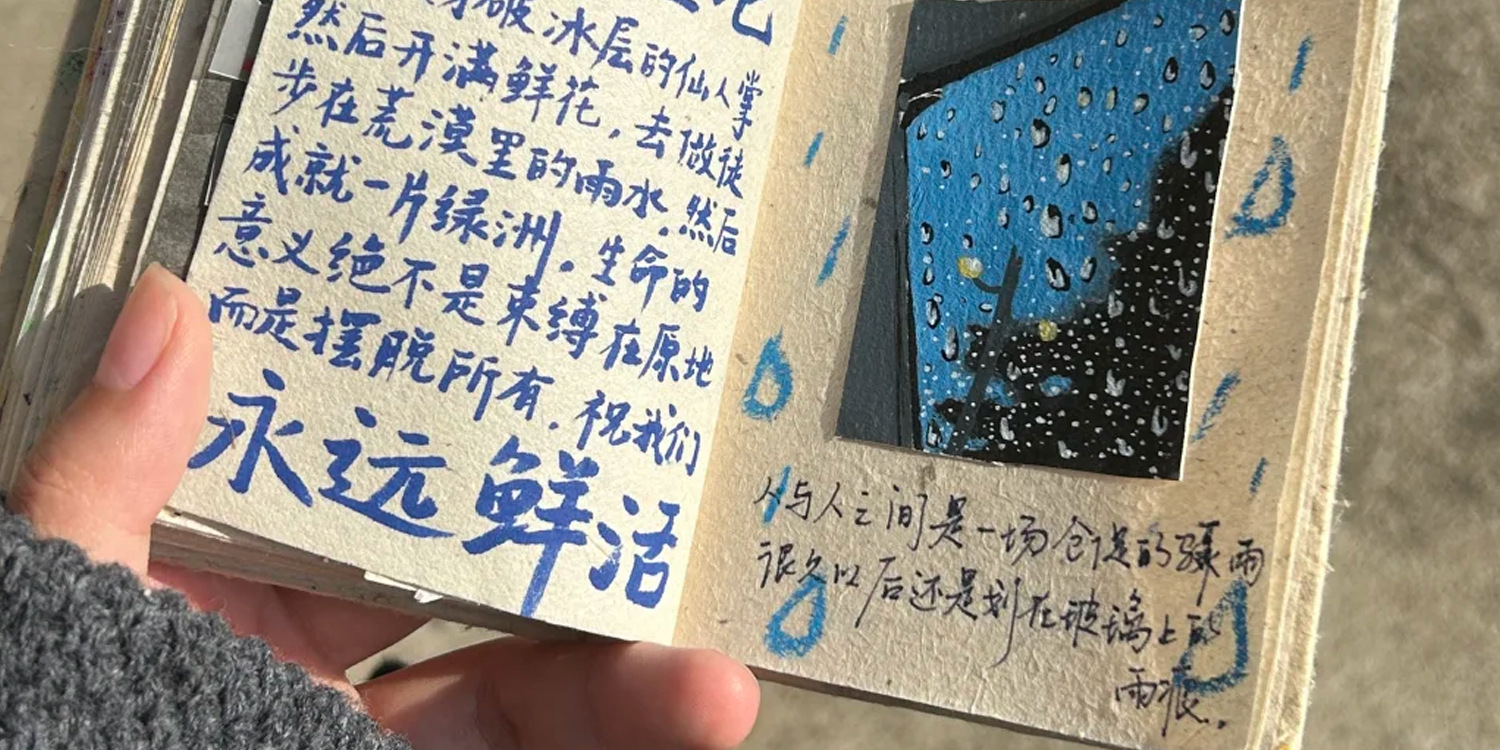 破冰层的仙人掌
然后开满鲜花，去做徒
步在荒漠里的雨水，然后
成就一片绿洲。生命的
意义绝不是束缚在原地
而是摆脱所有．祝我们
永远鲜活
人与人之间是一场仓促的骤雨
很久以后还是划在玻璃上的
雨痕．